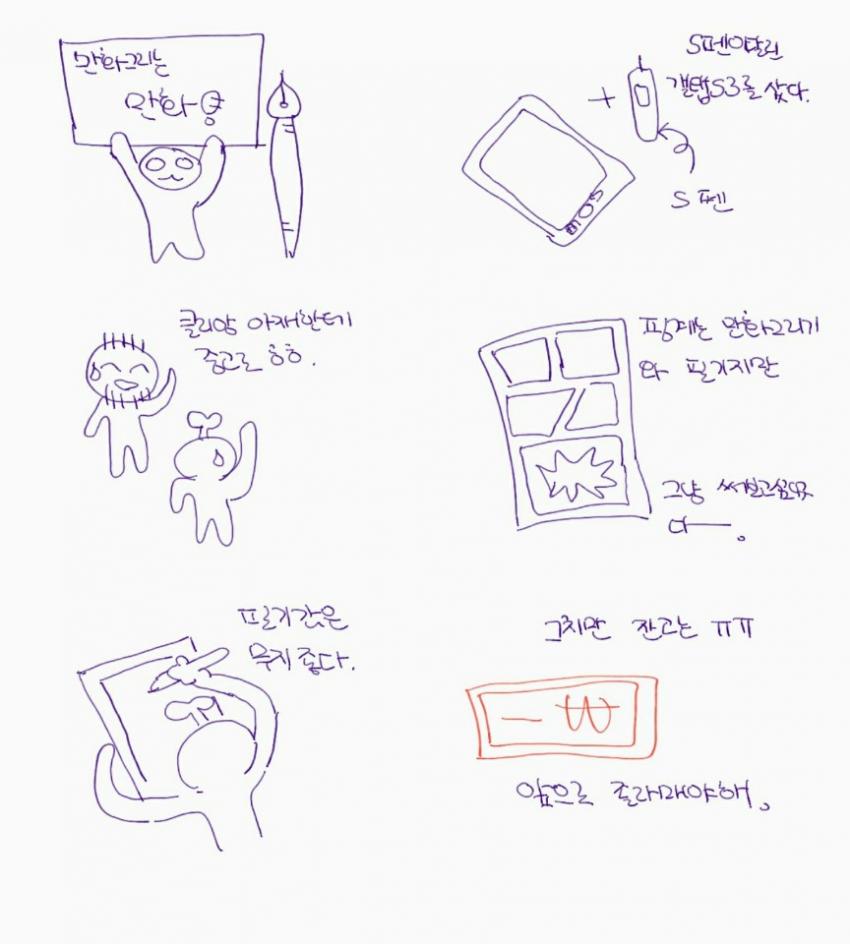 만화그리는
만화!
S펜이달린
갤탭S3를 샀다.
S펜
클리앙 아재한테
중고로 ㅎㅎ.
핑계는 만화그리기
와 필기지만
그냥 써보고싶었
다—.
필기감은
무지 좋다.
그치만 잔고는 ㅠㅠ
- ₩
앞으로 졸라매야해.